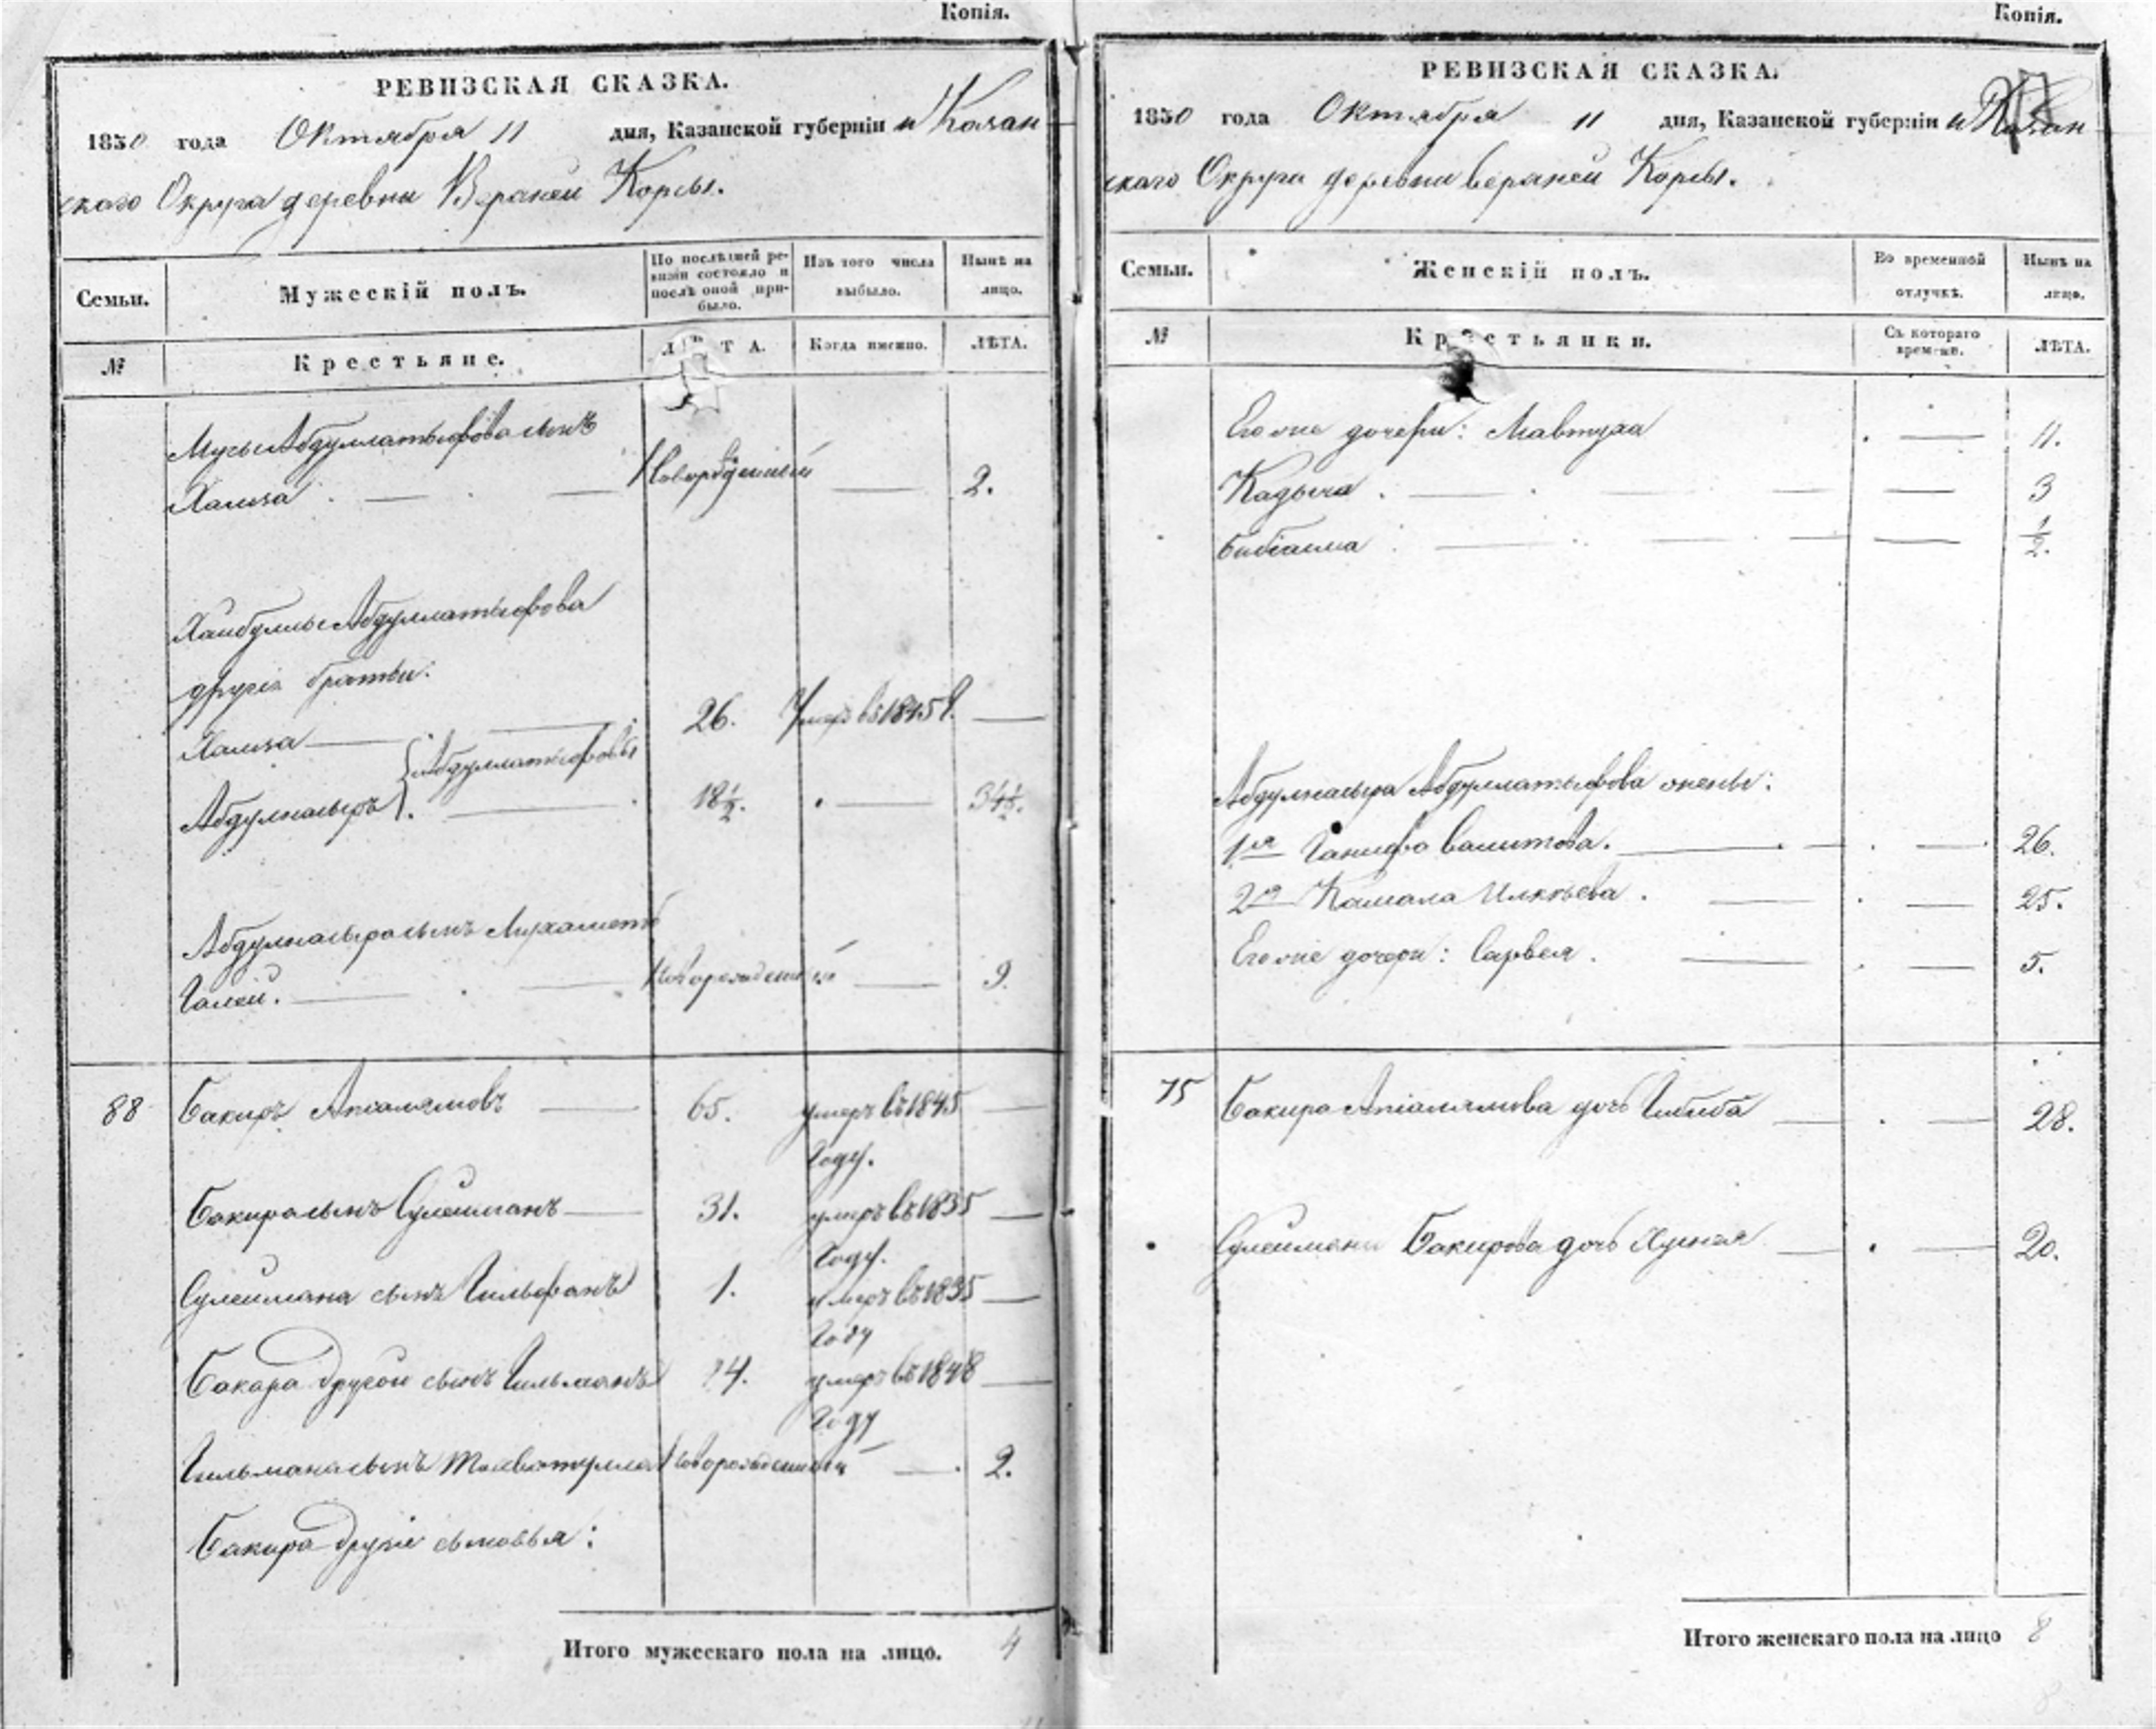 Копія.
РЕВИЗСКАЯ СКАЗКА.
1850 года Октября 11 дня, Казанской губерніи и Казан
скаго Округа деревни Верхней Корсы.
Семьи.
Мужескій полъ.
По послѣдней ре-
визіи состояло и
послѣ оной при-
было.
Изъ того числа
выбыло.
Нынѣ на
лицо.
№
Крестьяне.
ЛѢТА.
Когда именно.
ЛѢТА.
Мусы Абдуллатыфова сынъ
Хамза Новорожденный 2.
Хайбуллы Абдуллатыфова
другіе братьи:
Хамза 26. Умеръ въ 1845 г.
Абдуллатыфовы
Абдулнасыръ 18½. 34½.
Абдулнасыра сынъ Мухаметъ
Галей. Новорожденный 9.
88 Бакиръ Апсалямовъ 65. умеръ въ 1845
году.
Бакира сынъ Сулейманъ 31. умеръ въ 1835
году.
Сулеймана сынъ Гильфанъ 1. умеръ въ 1835
году
Бакира другой сынъ Гильманъ 24. умеръ въ 1848
году
Гильмана сынъ Новорожденный 2.
Бакира другіе сыновья:
Итого мужескаго пола на лицо. 4
Копія.
РЕВИЗСКАЯ СКАЗКА.
1850 года Октября 11 дня, Казанской губерніи и Казан
скаго Округа деревни Верхней Корсы.
Семьи.
Женскій полъ.
Во временной
отлучкѣ.
Нынѣ на
лицо.
№
Крестьянки.
Съ котораго
времени.
ЛѢТА.
Его же дочери: Мавтуха 11.
Кадыча 3
Бибіаима ½.
Абдулнасыра Абдуллатыфова жены:
1я Ганифа Валитова. 26.
2я Камала Илкъева. 25.
Его же дочери: Сарвея. 5.
75 Бакира Апсалямова дочь Гибиба 28.
Сулеймана Бакирова дочь 20.
Итого женскаго пола на лицо 8